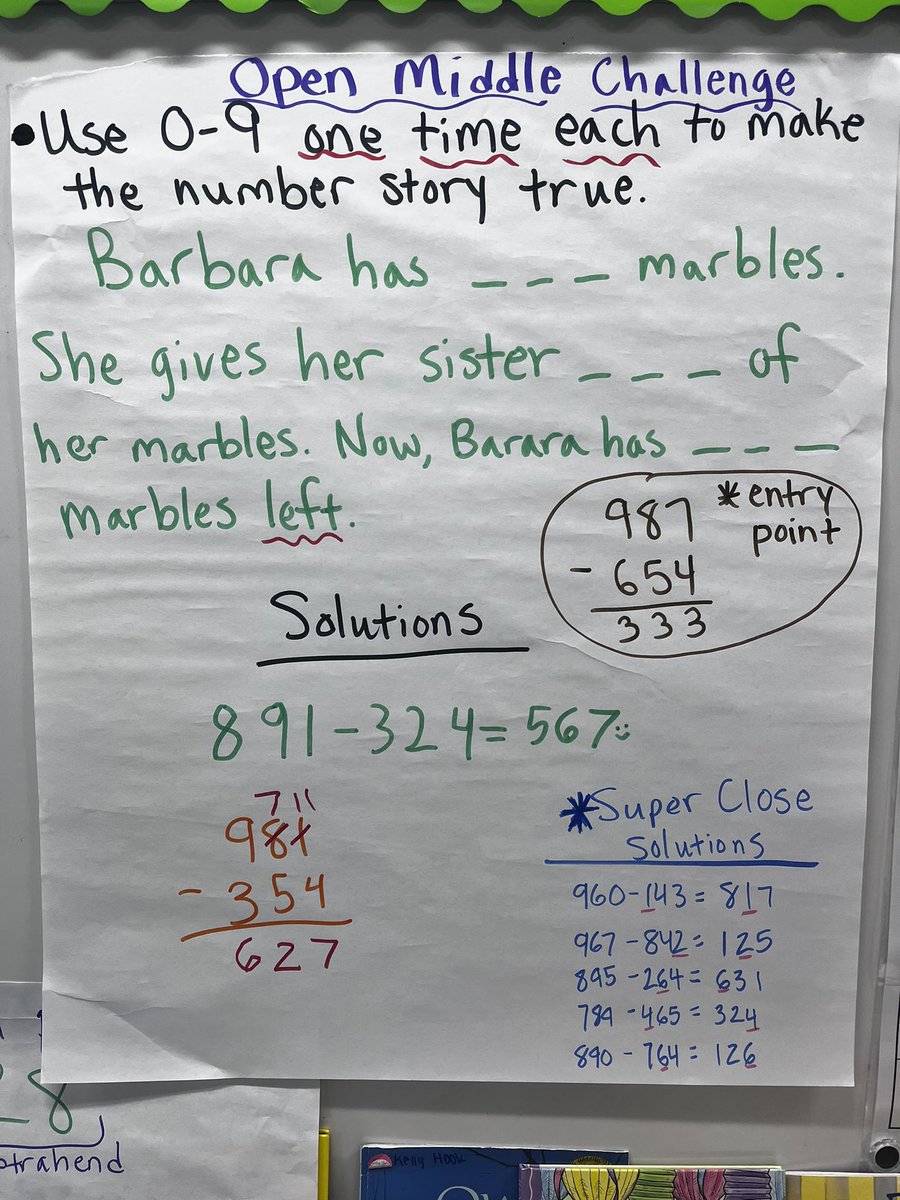 Open Middle Challenge
• Use 0-9 one time each to make
the number story true.
Barbara has _ _ _ marbles.
She gives her sister _ _ _ of
her marbles. Now, Barara has _ _ _
marbles left.
987 * entry
point
- 654
333
Solutions
891-324=567
7 11
981
- 354
627
*Super Close
Solutions
960-143=817
967-842=125
895-264=631
789-465=324
890-764=126
8
otrahend
Kelly Hook